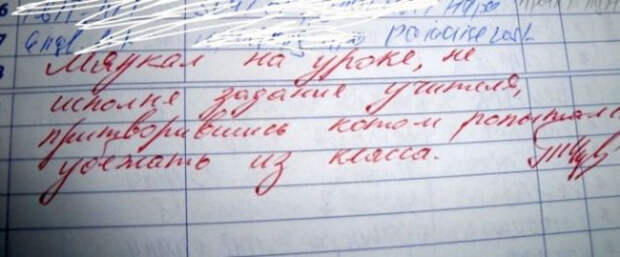 6
7 Англ
8 Мяукал на уроке, не
исполня задание учителя,
притворившись котом попыталс
убежать из класса.